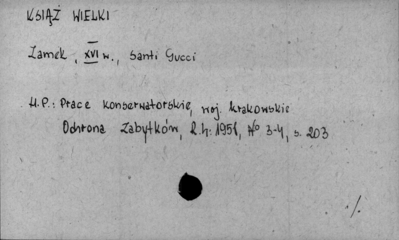 KSIĄŻ WIELKI
Zamek, XVI w., Santi Gucci
H.P.: Prace konserwatorskie, woj. krakowskie
Ochrona Zabytków, R.h: 1951, No 3-4, s. 203
./.